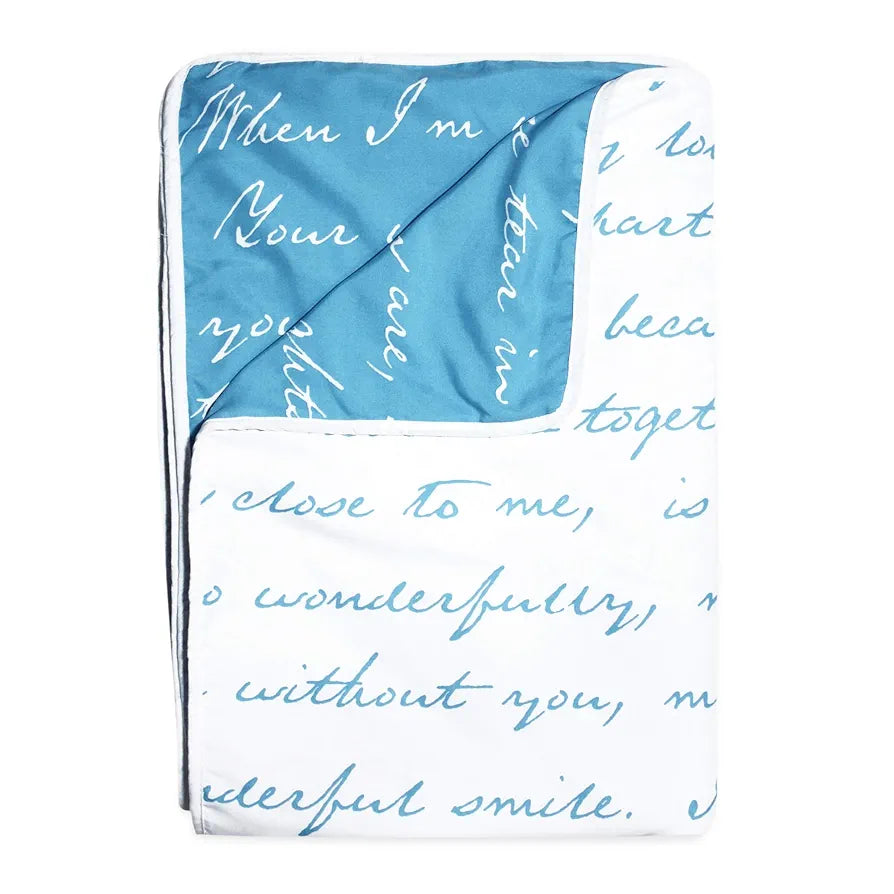 When I m
Your
you
are,
tear in
part
beca
toget
close to me, is
wonderfully,
without you,
derful smile.